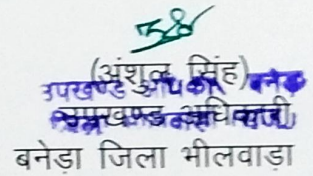 (अंशुल सिंह)
उपखण्ड अधिकारी बनेड़ा
उपखण्ड अधिकारी
बनेड़ा जिला भीलवाड़ा